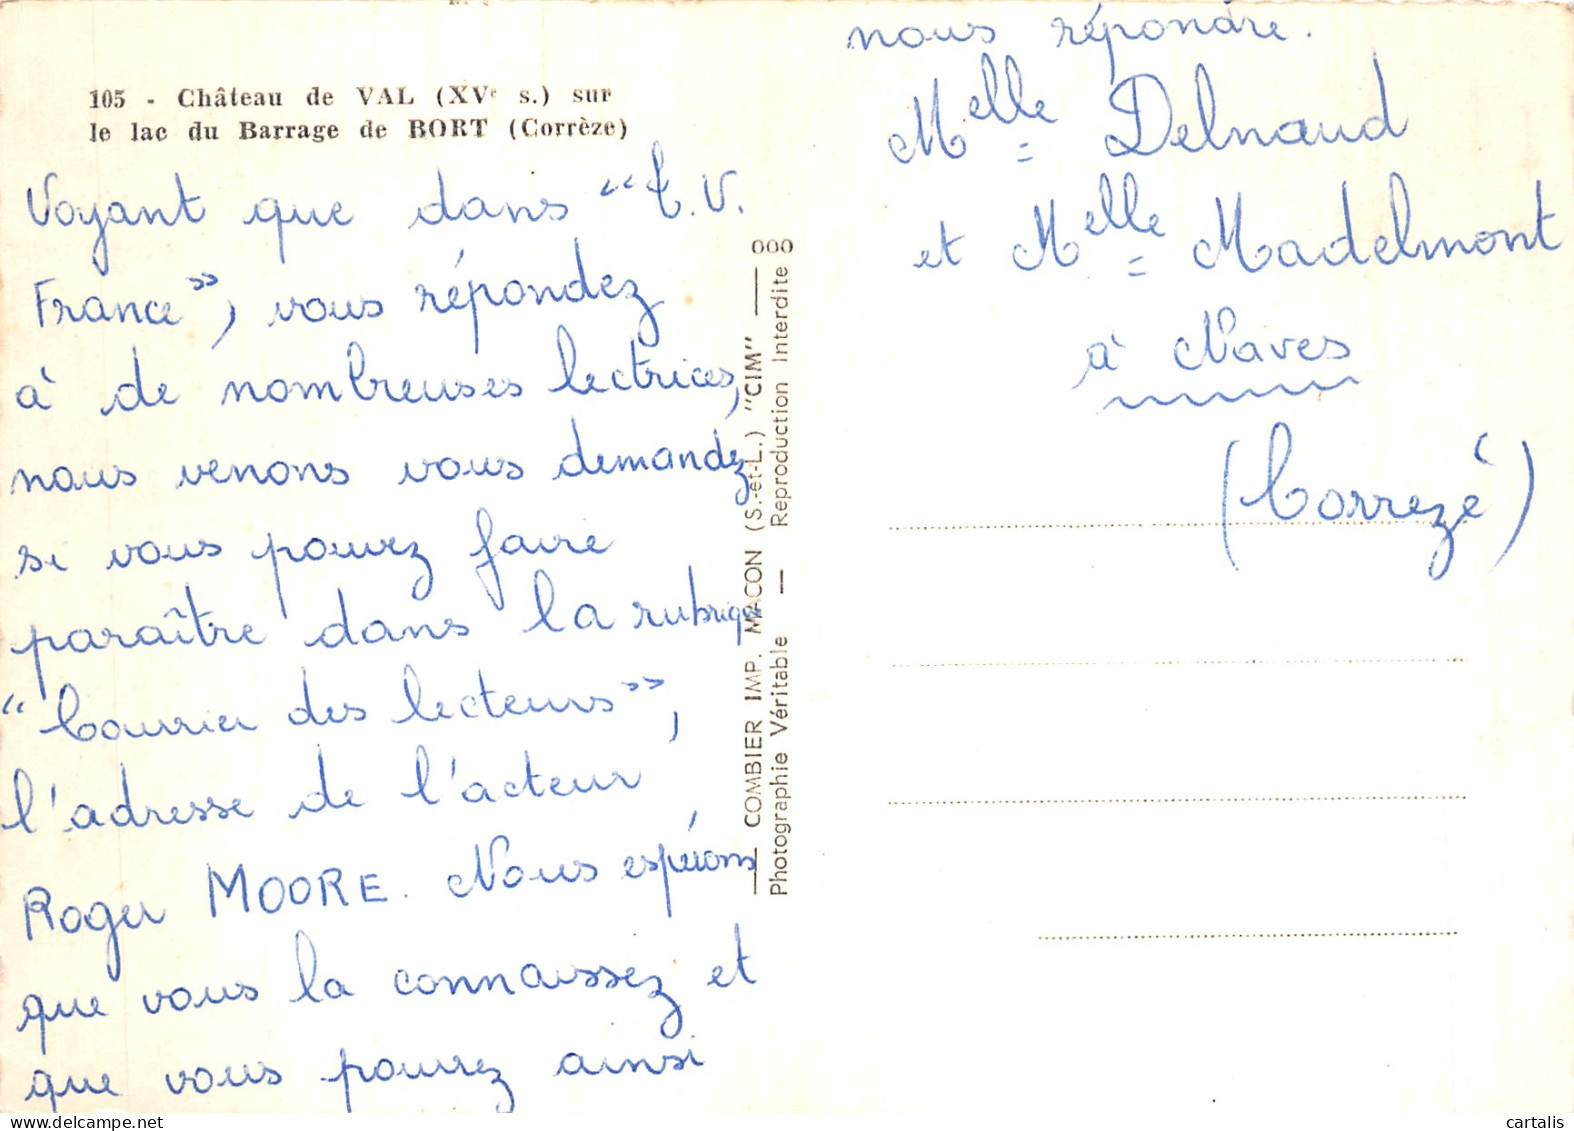 105 - Château de VAL (XVe s.) sur
le lac du Barrage de BORT (Corrèze)
Voyant que dans “T.V.
France”, vous répondez
à de nombreuses lectrices,
nous venons vous demandez
si vous pouvez faire
paraître dans la rubrique
“Courrier des lecteurs”,
l'adresse de l'acteur
Roger MOORE. Nous espérons
que vous la connaissez et
que vous pourrez ainsi
COMBIER IMP. MACON (S.-et-L.) "CIM"
Photographie Véritable — Reproduction Interdite
nous répondre.
Melle Delnaud
et Melle Madelmont
à Naves
(Corrézé)
cartalis
www.delcampe.net